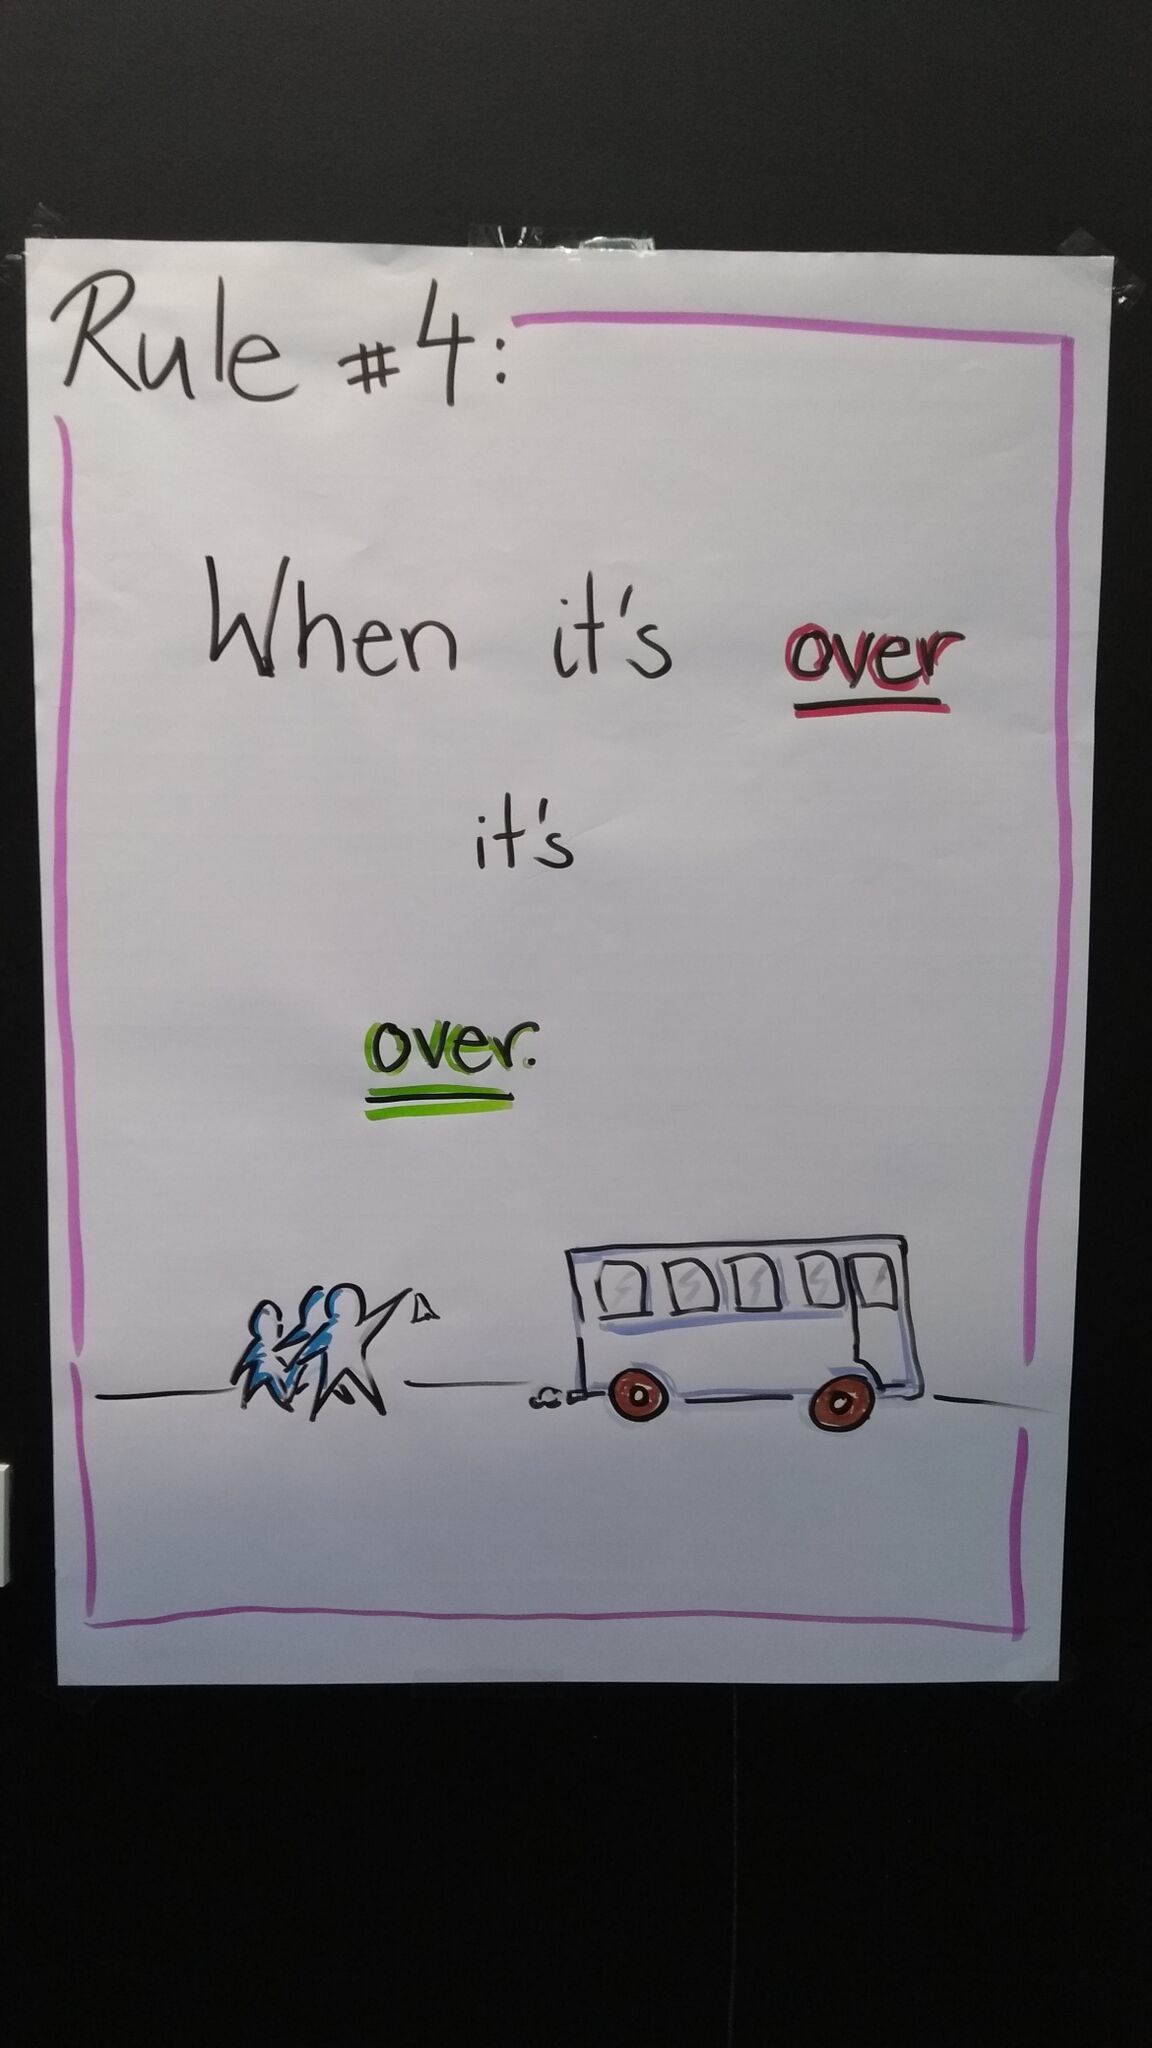 Rule #4:
When it's over
it's
over.